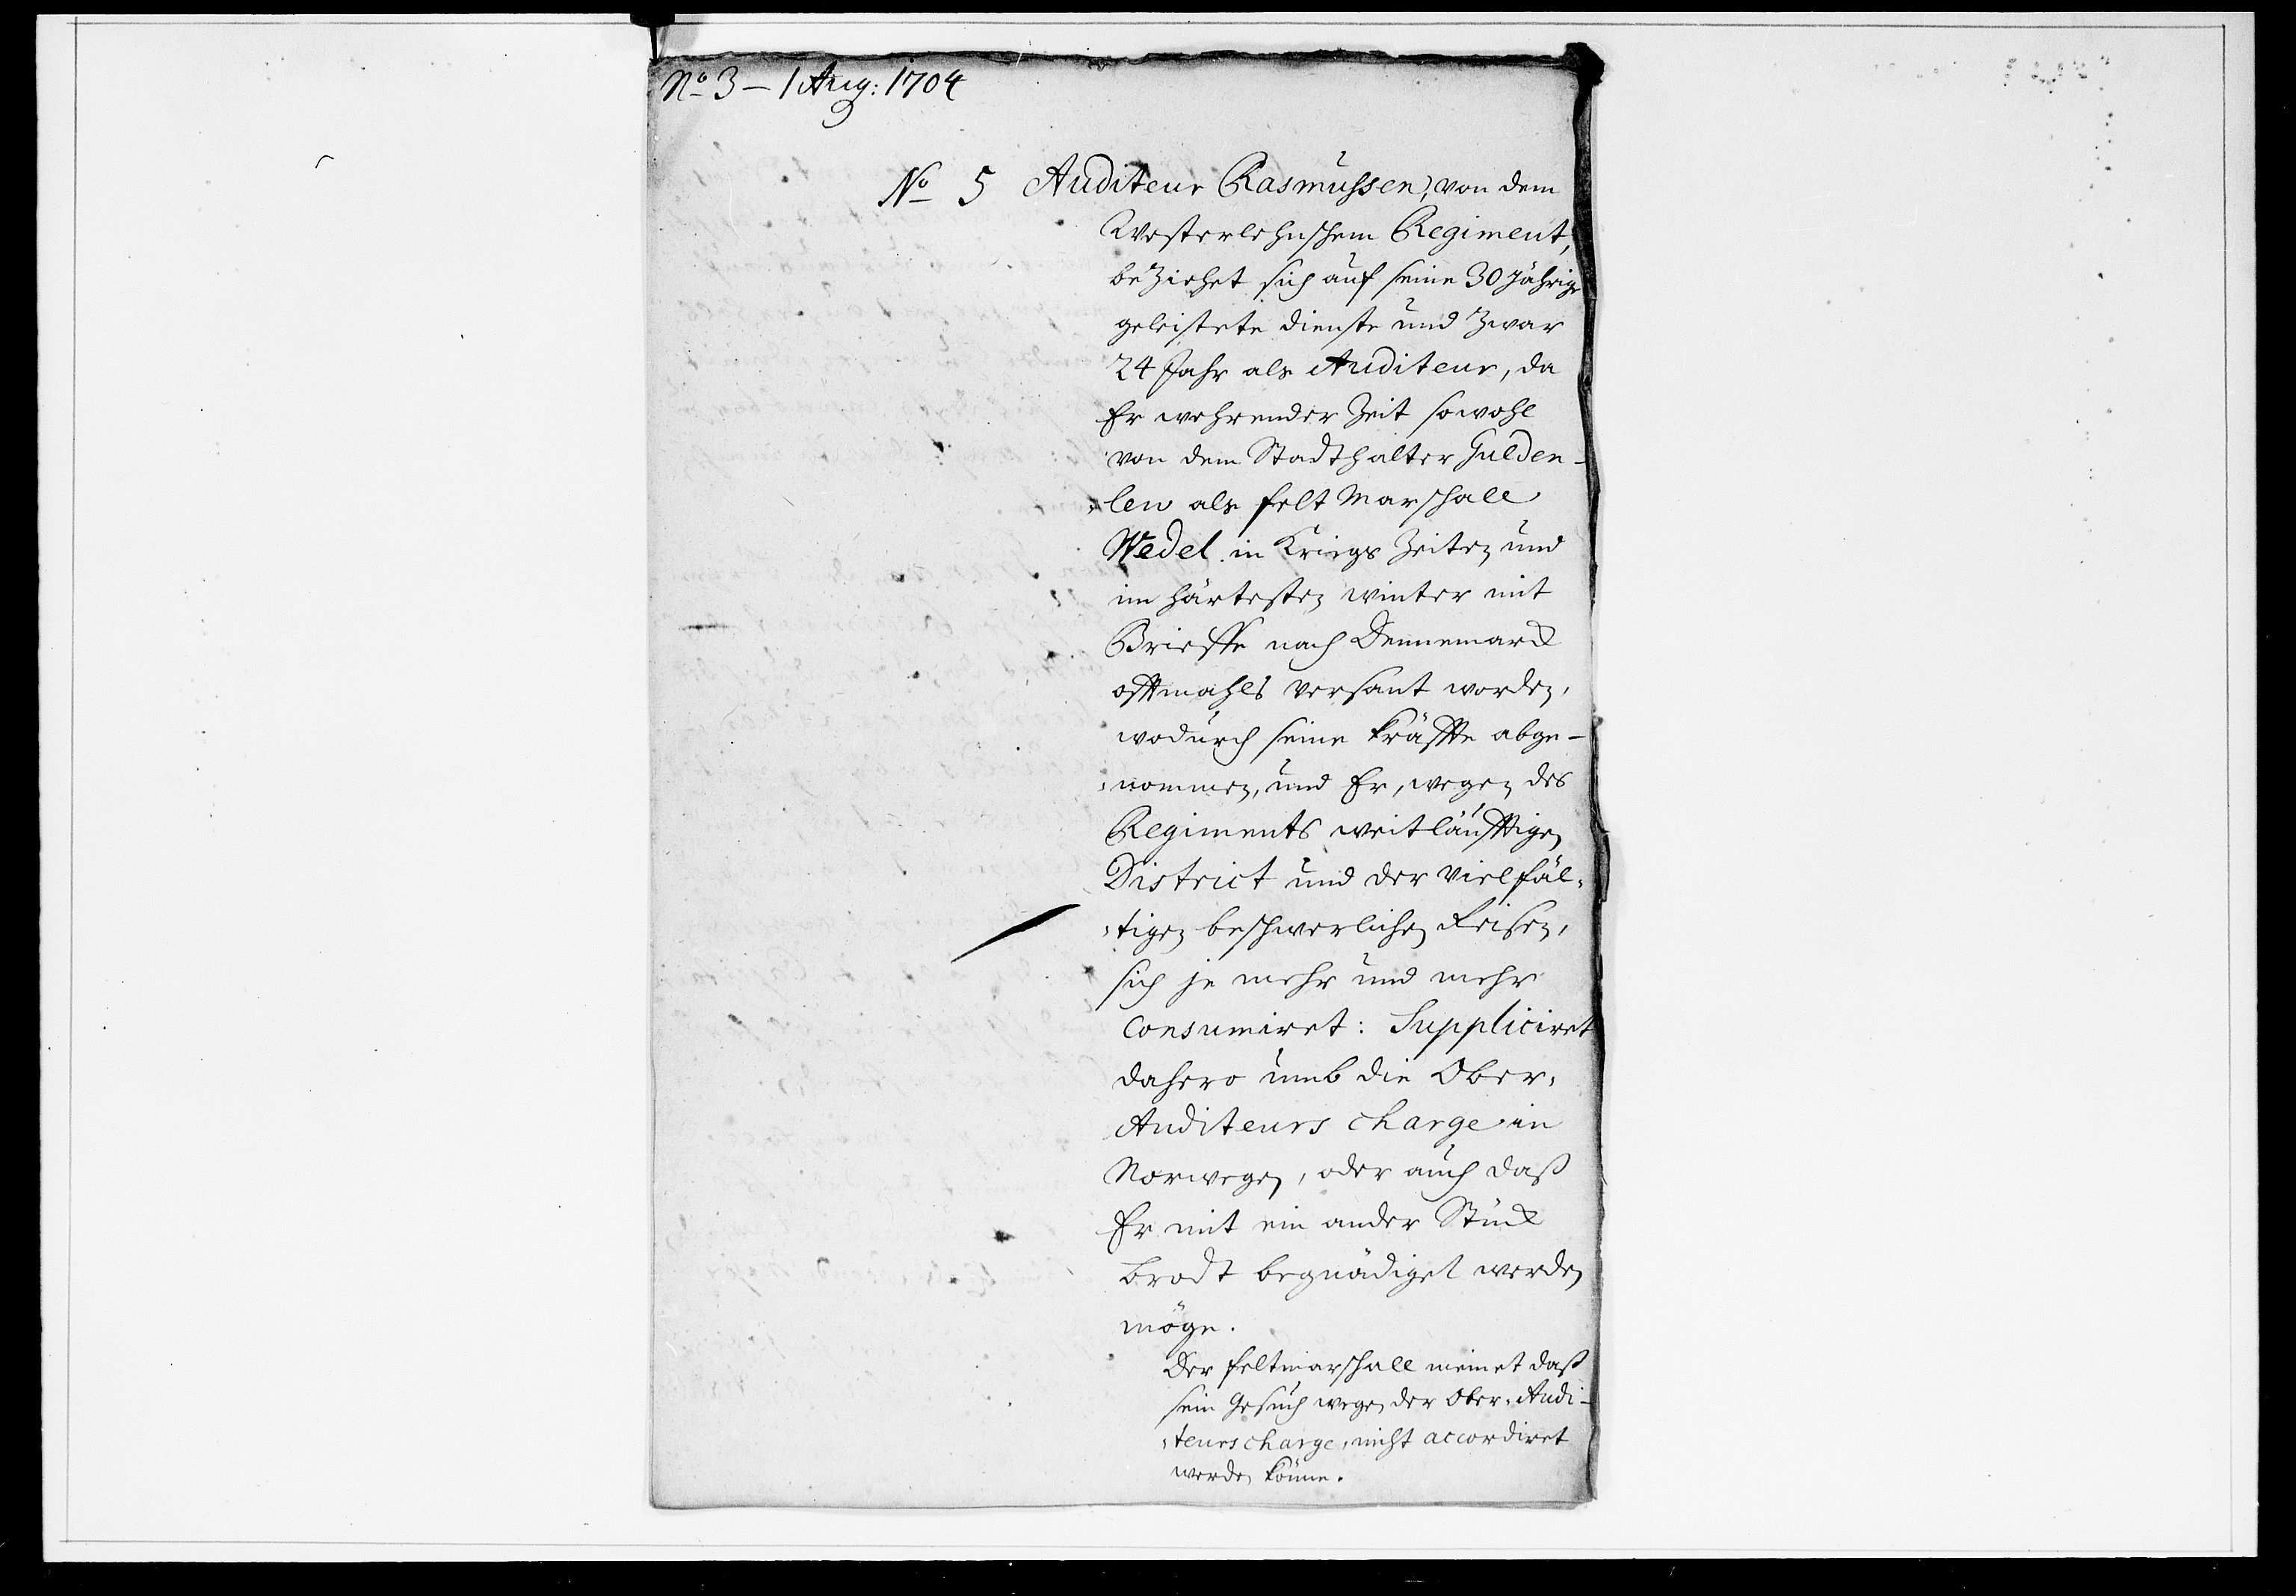 No 3 – 1 Aug: 1704
No 5 Auditeur Rasmussen, von dem
Westerlehnschem Regiment,
beziehet sich auf seine 30 Jährige
geleistete dienste und zwar
24 Jahr als Auditeur, da
Er wehrender Zeit sowohl
von dem Stadthalter Gulden-
-lew als felt Marschall
Wedel in Kriegs Zeiten und
im härtesten winter mit
Brieffe nach Dennemarck
offtmahls versant worden,
wodurch seine kräffte abge-
-nommen, und Er, wegen des
Regiments weitläufftigen
District und der vielfäl-
-tigen beschwerlichen Reisen,
sich je mehr und mehr
consumiret: Suppliciret
dahero umb die Ober-
Auditeurs charge in
Norwegen, oder auch daß
Er mit ein ander Stück
brodt begnädiget werden
möge.
Der feltmarschall meinet daß
sein Gesuch wegen der Ober-Audi-
-teurs charge, nicht accordiret
werden könne.